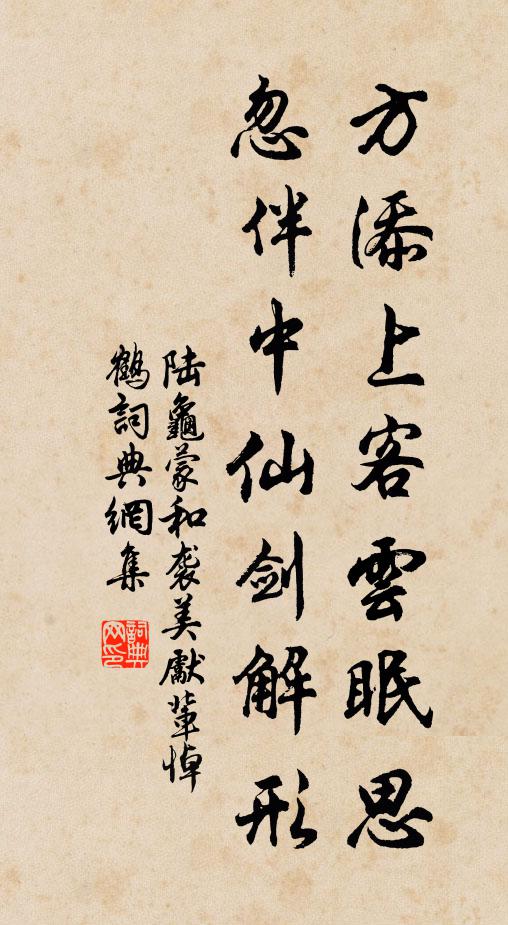 方添上客雲眠思
忽伴中仙剑解形
陆龜蒙和袭美獻輩悼
鶴詞典網集
詞典網印